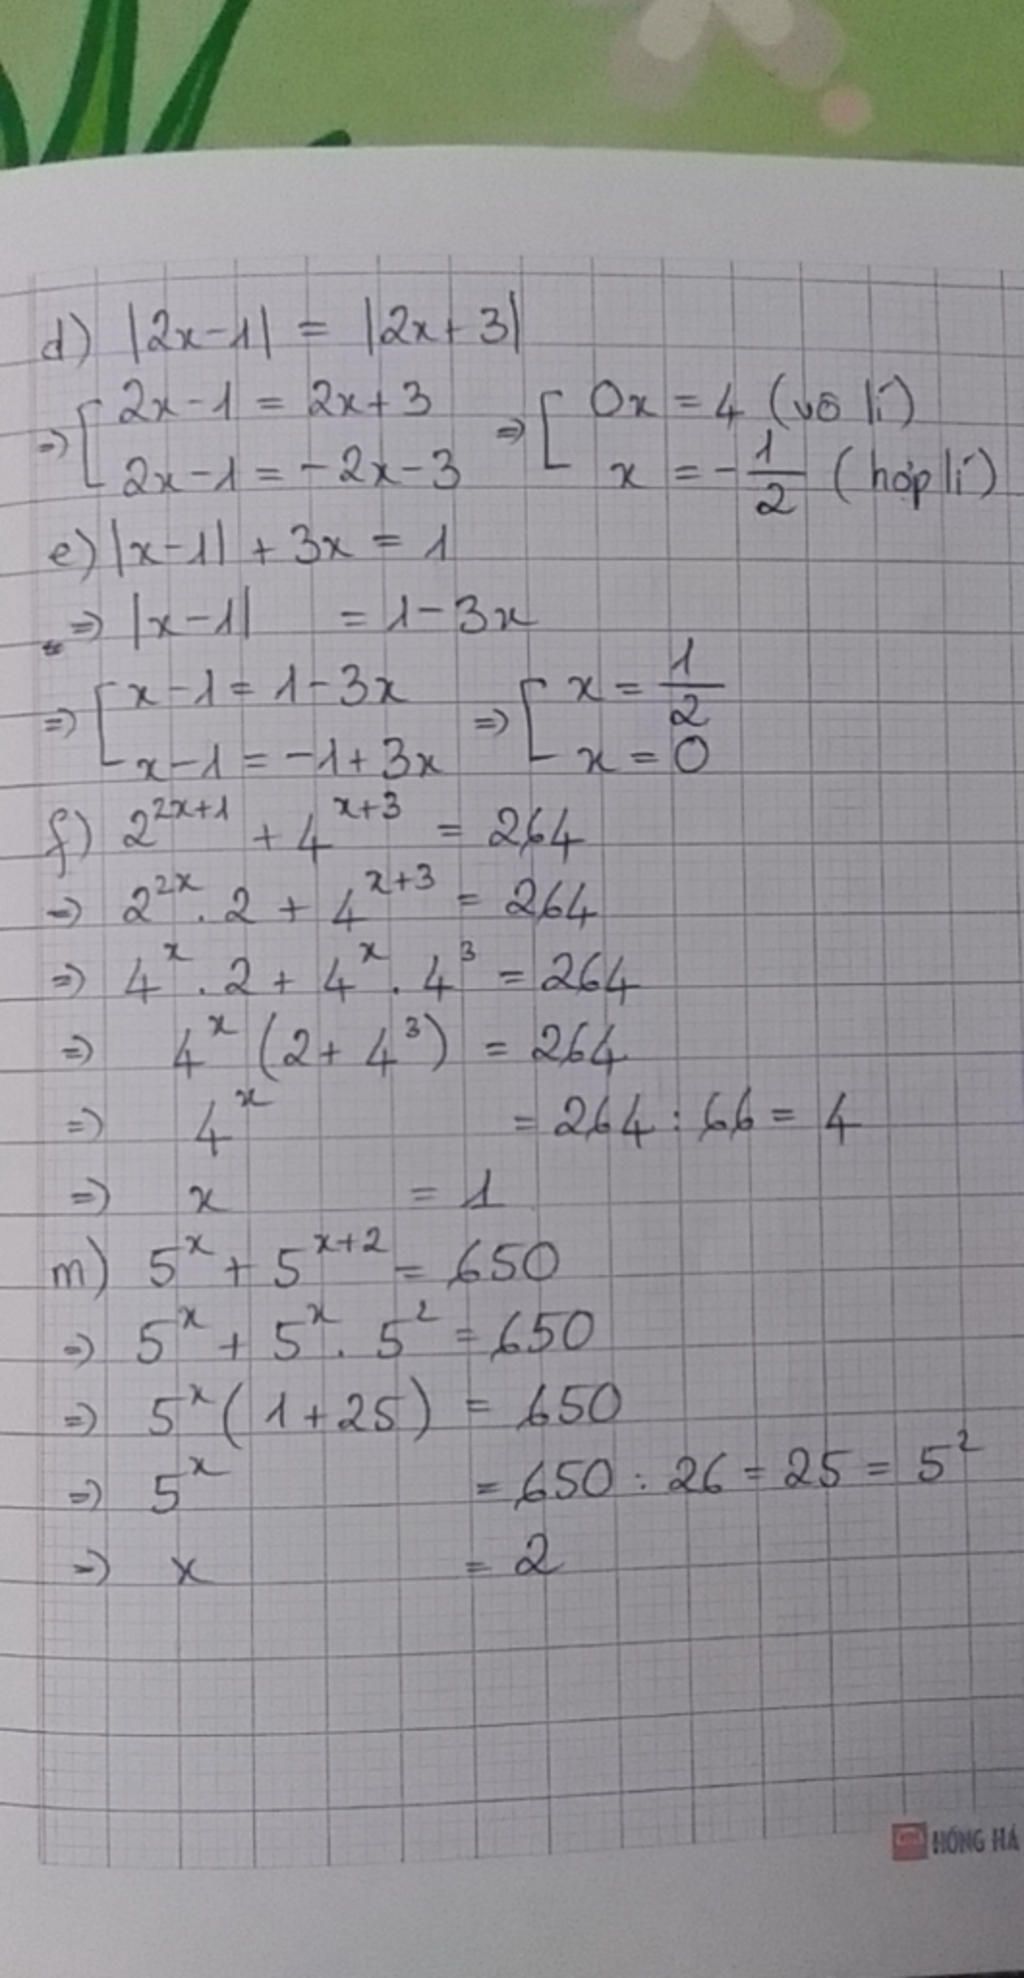 d) |2x-1| = |2x+3|
=> [ 2x-1 = 2x+3 => [ 0x = 4 (vô lí)
2x-1 = -2x-3 x = -1/2 (hợp lí)
e) |x-1| + 3x = 1
=> |x-1| = 1-3x
=> [ x-1 = 1-3x => [ x = 1/2
x-1 = -1+3x x = 0
f) 2^(2x+1) + 4^(x+3) = 264
=> 2^(2x) . 2 + 4^(x+3) = 264
=> 4^x . 2 + 4^x . 4^3 = 264
=> 4^x (2+4^3) = 264
=> 4^x = 264 : 66 = 4
=> x = 1
m) 5^x + 5^(x+2) = 650
=> 5^x + 5^x . 5^2 = 650
=> 5^x (1+25) = 650
=> 5^x = 650 : 26 = 25 = 5^2
=> x = 2
HỒNG HÀ